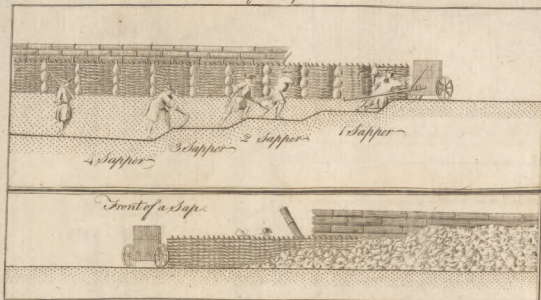 1 Sapper
2 Sapper
3 Sapper
4 Sapper
Front of a Sap.